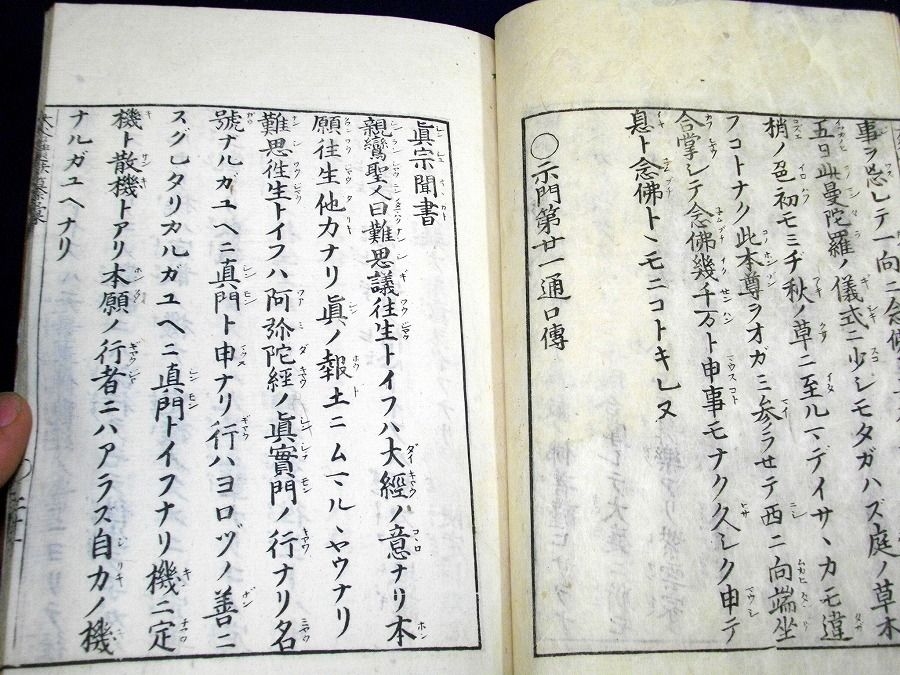 事ヲ忘レテ一向ニ念佛
五日此曼陀羅ノ儀式ニ少シモタガハズ庭ノ草木
梢ノ色初モミヂ秋ノ草ニ至ルマデイサヽカモ違
フコトナク此本尊ヲオガミ参ラセテ西ニ向端坐
合掌シテ念佛幾千万ト申事モナク久シク申テ
息ト念佛トヽモニコトキレヌ
○示門第廿一通口傳
眞宗聞書
親鸞聖人曰難思議往生トイフハ大經ノ意ナリ本
願往生他力ナリ眞ノ報土ニムマルヽヤウナリ
難思往生トイフハ阿弥陀經ノ眞實門ノ行ナリ名
號ナルガユヘニ眞門ト申ナリ行ハヨロヅノ善ニ
スグレタリカルガユヘニ眞門トイフナリ機ニ定
機ト散機トアリ本願ノ行者ニハアラズ自力ノ機
ナルガユヘナリ